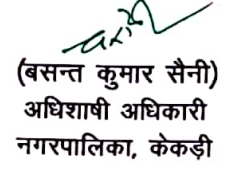 (बसन्त कुमार सैनी)
अधिशाषी अधिकारी
नगरपालिका, केकड़ी